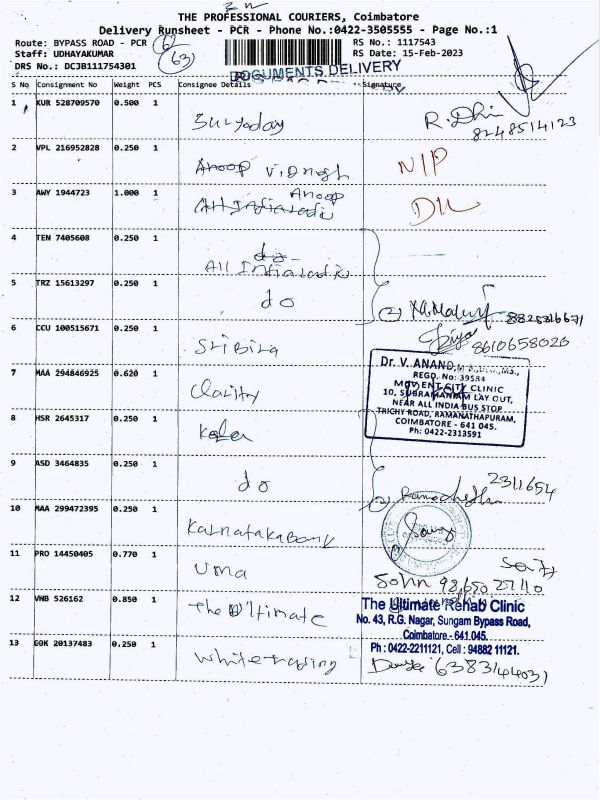 THE PROFESSIONAL COURIERS, Coimbatore
Delivery Runsheet - PCR - Phone No.:0422-3505555 - Page No.:1
Route: BYPASS ROAD - PCR
Staff: UDHAYAKUMAR
DRS No.: DCJB111754301
63
RS No.: 1117543
RS Date: 15-Feb-2023
DOCUMENTS DELIVERY
S No Consignment No Weight PCS Consignee Details Signature
1 KUR 528709570 0.500 1 Suryoday R. Dhi
8248514123
2 VPL 216952828 0.250 1 Anoop V. Dnogh NIP
3 AWY 1944723 1.000 1 Anoop DIL
4 TEN 7405608 0.250 1 do
All India radio
5 TRZ 15613297 0.250 1 do 2
6 CCU 100515671 0.250 1 Sri Bila Priya 8610658020
7 MAA 294846925 0.620 1 Clarity
Dr. V. ANAND
REGD. No: 39584
MOVENT CITY CLINIC
10, SUBRAMANIAM LAY OUT,
NEAR ALL INDIA BUS STOP
TRICHY ROAD, RAMANATHAPURAM,
COIMBATORE - 641 045.
Ph: 0422-2313591
8 HSR 2645317 0.250 1
9 ASD 3464835 0.250 1 do 2311654
10 MAA 299472395 0.250 1 Karnataka Bank
11 PRO 14450405 0.770 1 Uma
John
12 VNB 526162 0.850 1 The Ultimate
The Ultimate Rehab Clinic
No. 43, R.G. Nagar, Sungam Bypass Road,
Coimbatore.- 641 045.
Ph : 0422-2211121, Cell : 94882 11121.
13 GOK 20137483 0.250 1 White rading